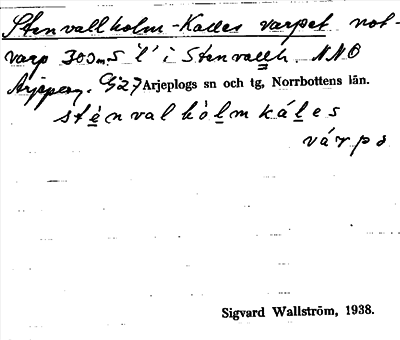 Stenvallholm-Kalles varpet not-
varp 300 m S 'l' i Stenvallh. NNO
Arjeplog. Arjeplogs sn och tg, Norrbottens län.
sténvalhòlmkáles
várpə
Sigvard Wallström, 1938.